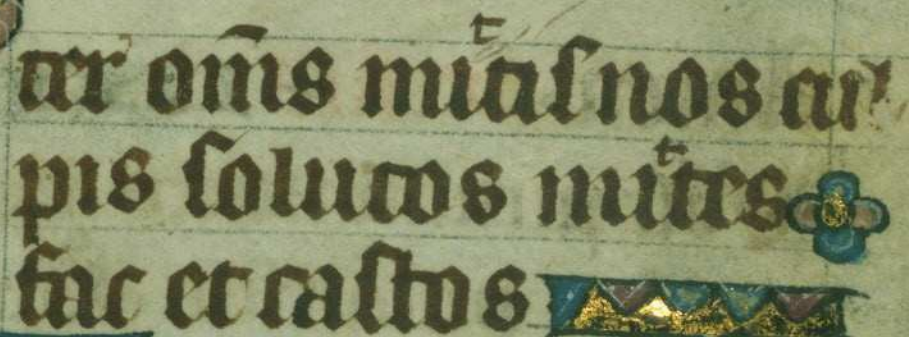 ter om̄s mitiſ nos cul
pis ſolutos mites
fac et caſtos